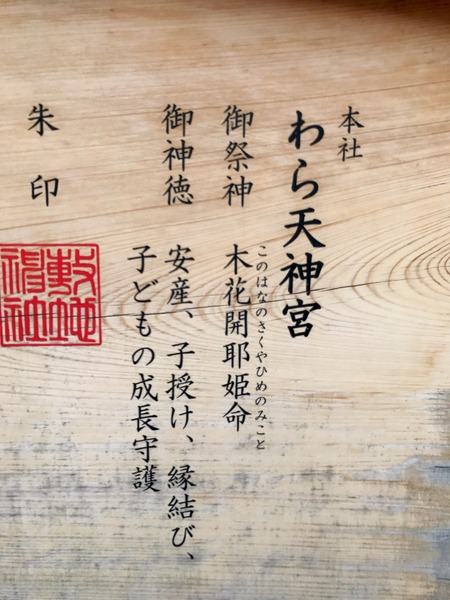 本社
わら天神宮
御祭神 木花開耶姫命
このはなのさくやひめのみこと
御神徳 安産、子授け、縁結び、
子どもの成長守護
朱印
敷地神社